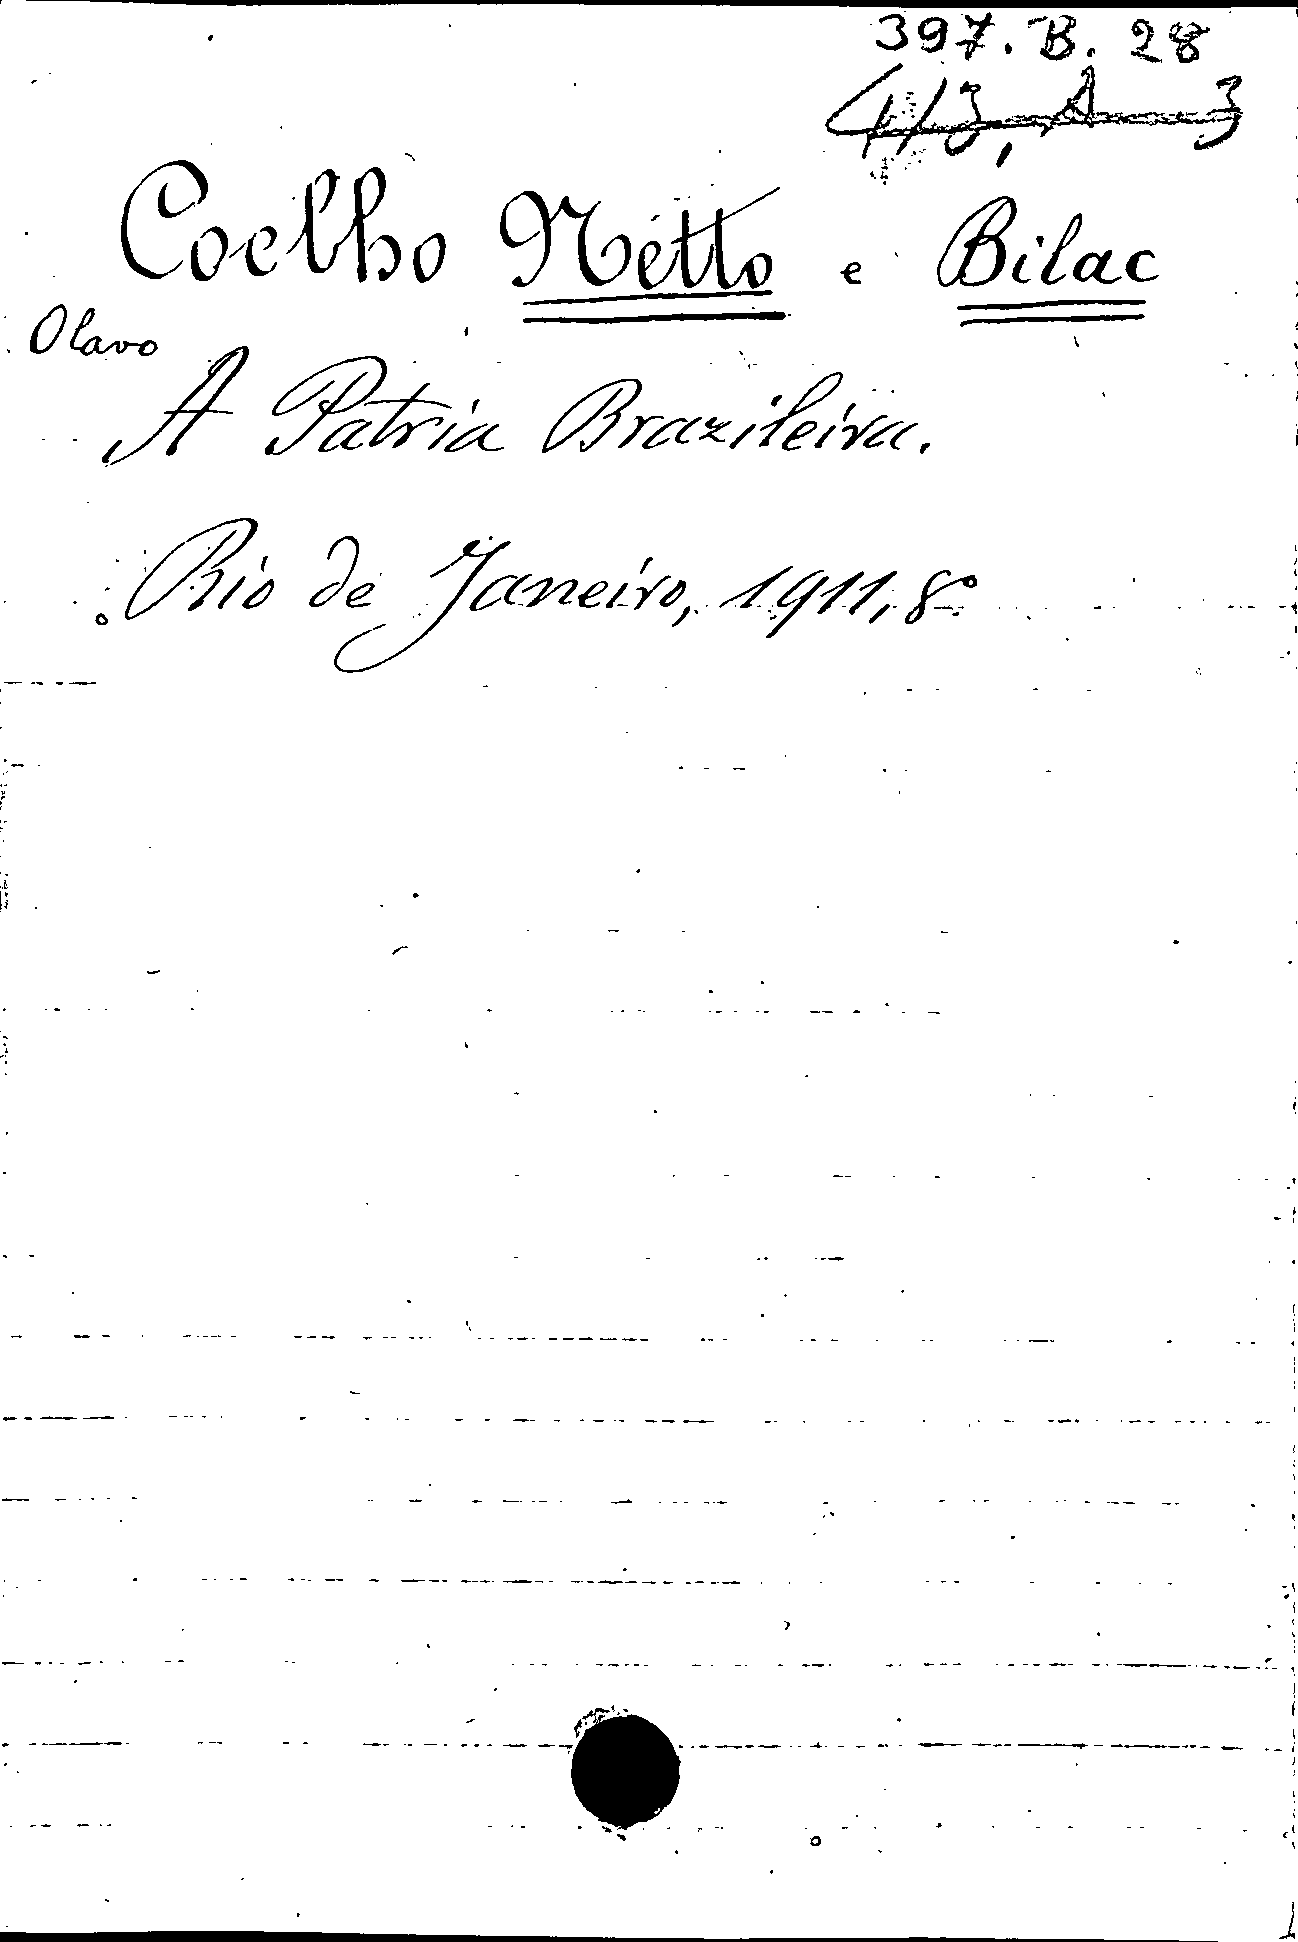 397. B. 28
413, A 3
Coelho Netto e Bilac
Olavo
A Patria Brazileira.
Rio de Janeiro, 1911, 8º